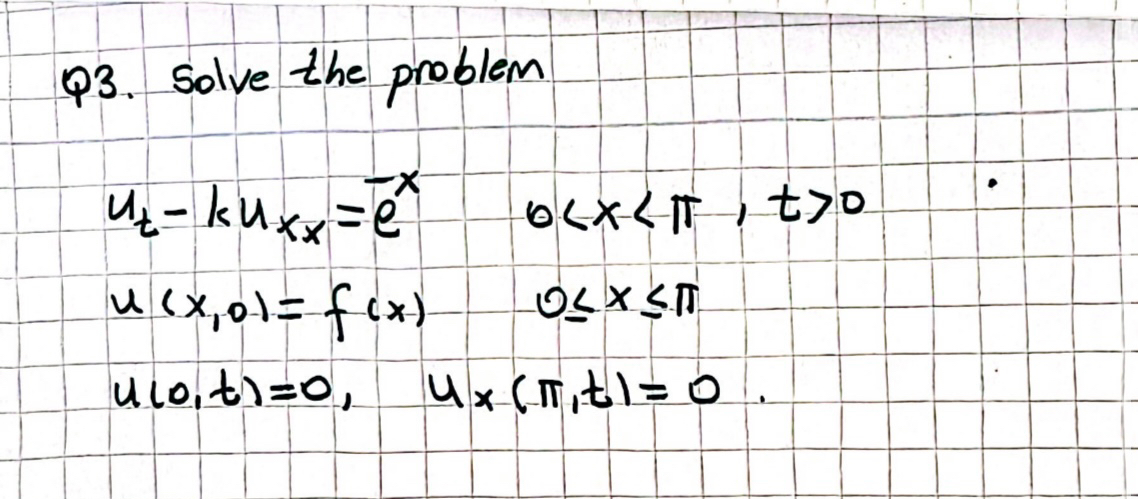 Q3. Solve the problem
u_t - k u_xx = e^-x 0<x<π , t>0
u(x,0) = f(x) 0≤x≤π
u(0,t)=0, u_x(π,t)=0.